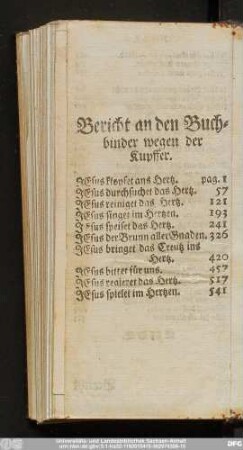 Bericht an den Buch-
binder wegen der
Kupffer.
JEsus klopfet ans Hertz. pag. 1
JEsus durchsuchet das Hertz. 57
JEsus reiniget das Hertz. 121
JEsus singet im Hertzen. 193
JEsus speiset das Hertz. 241
JEsus der Brunn aller Gnaden. 326
JEsus bringet das Creutz ins
Hertz. 420
JEsus bittet für uns. 457
JEsus regieret das Hertz. 517
JEsus spielet im Hertzen. 541
Universitäts- und Landesbibliothek Sachsen-Anhalt
DFG